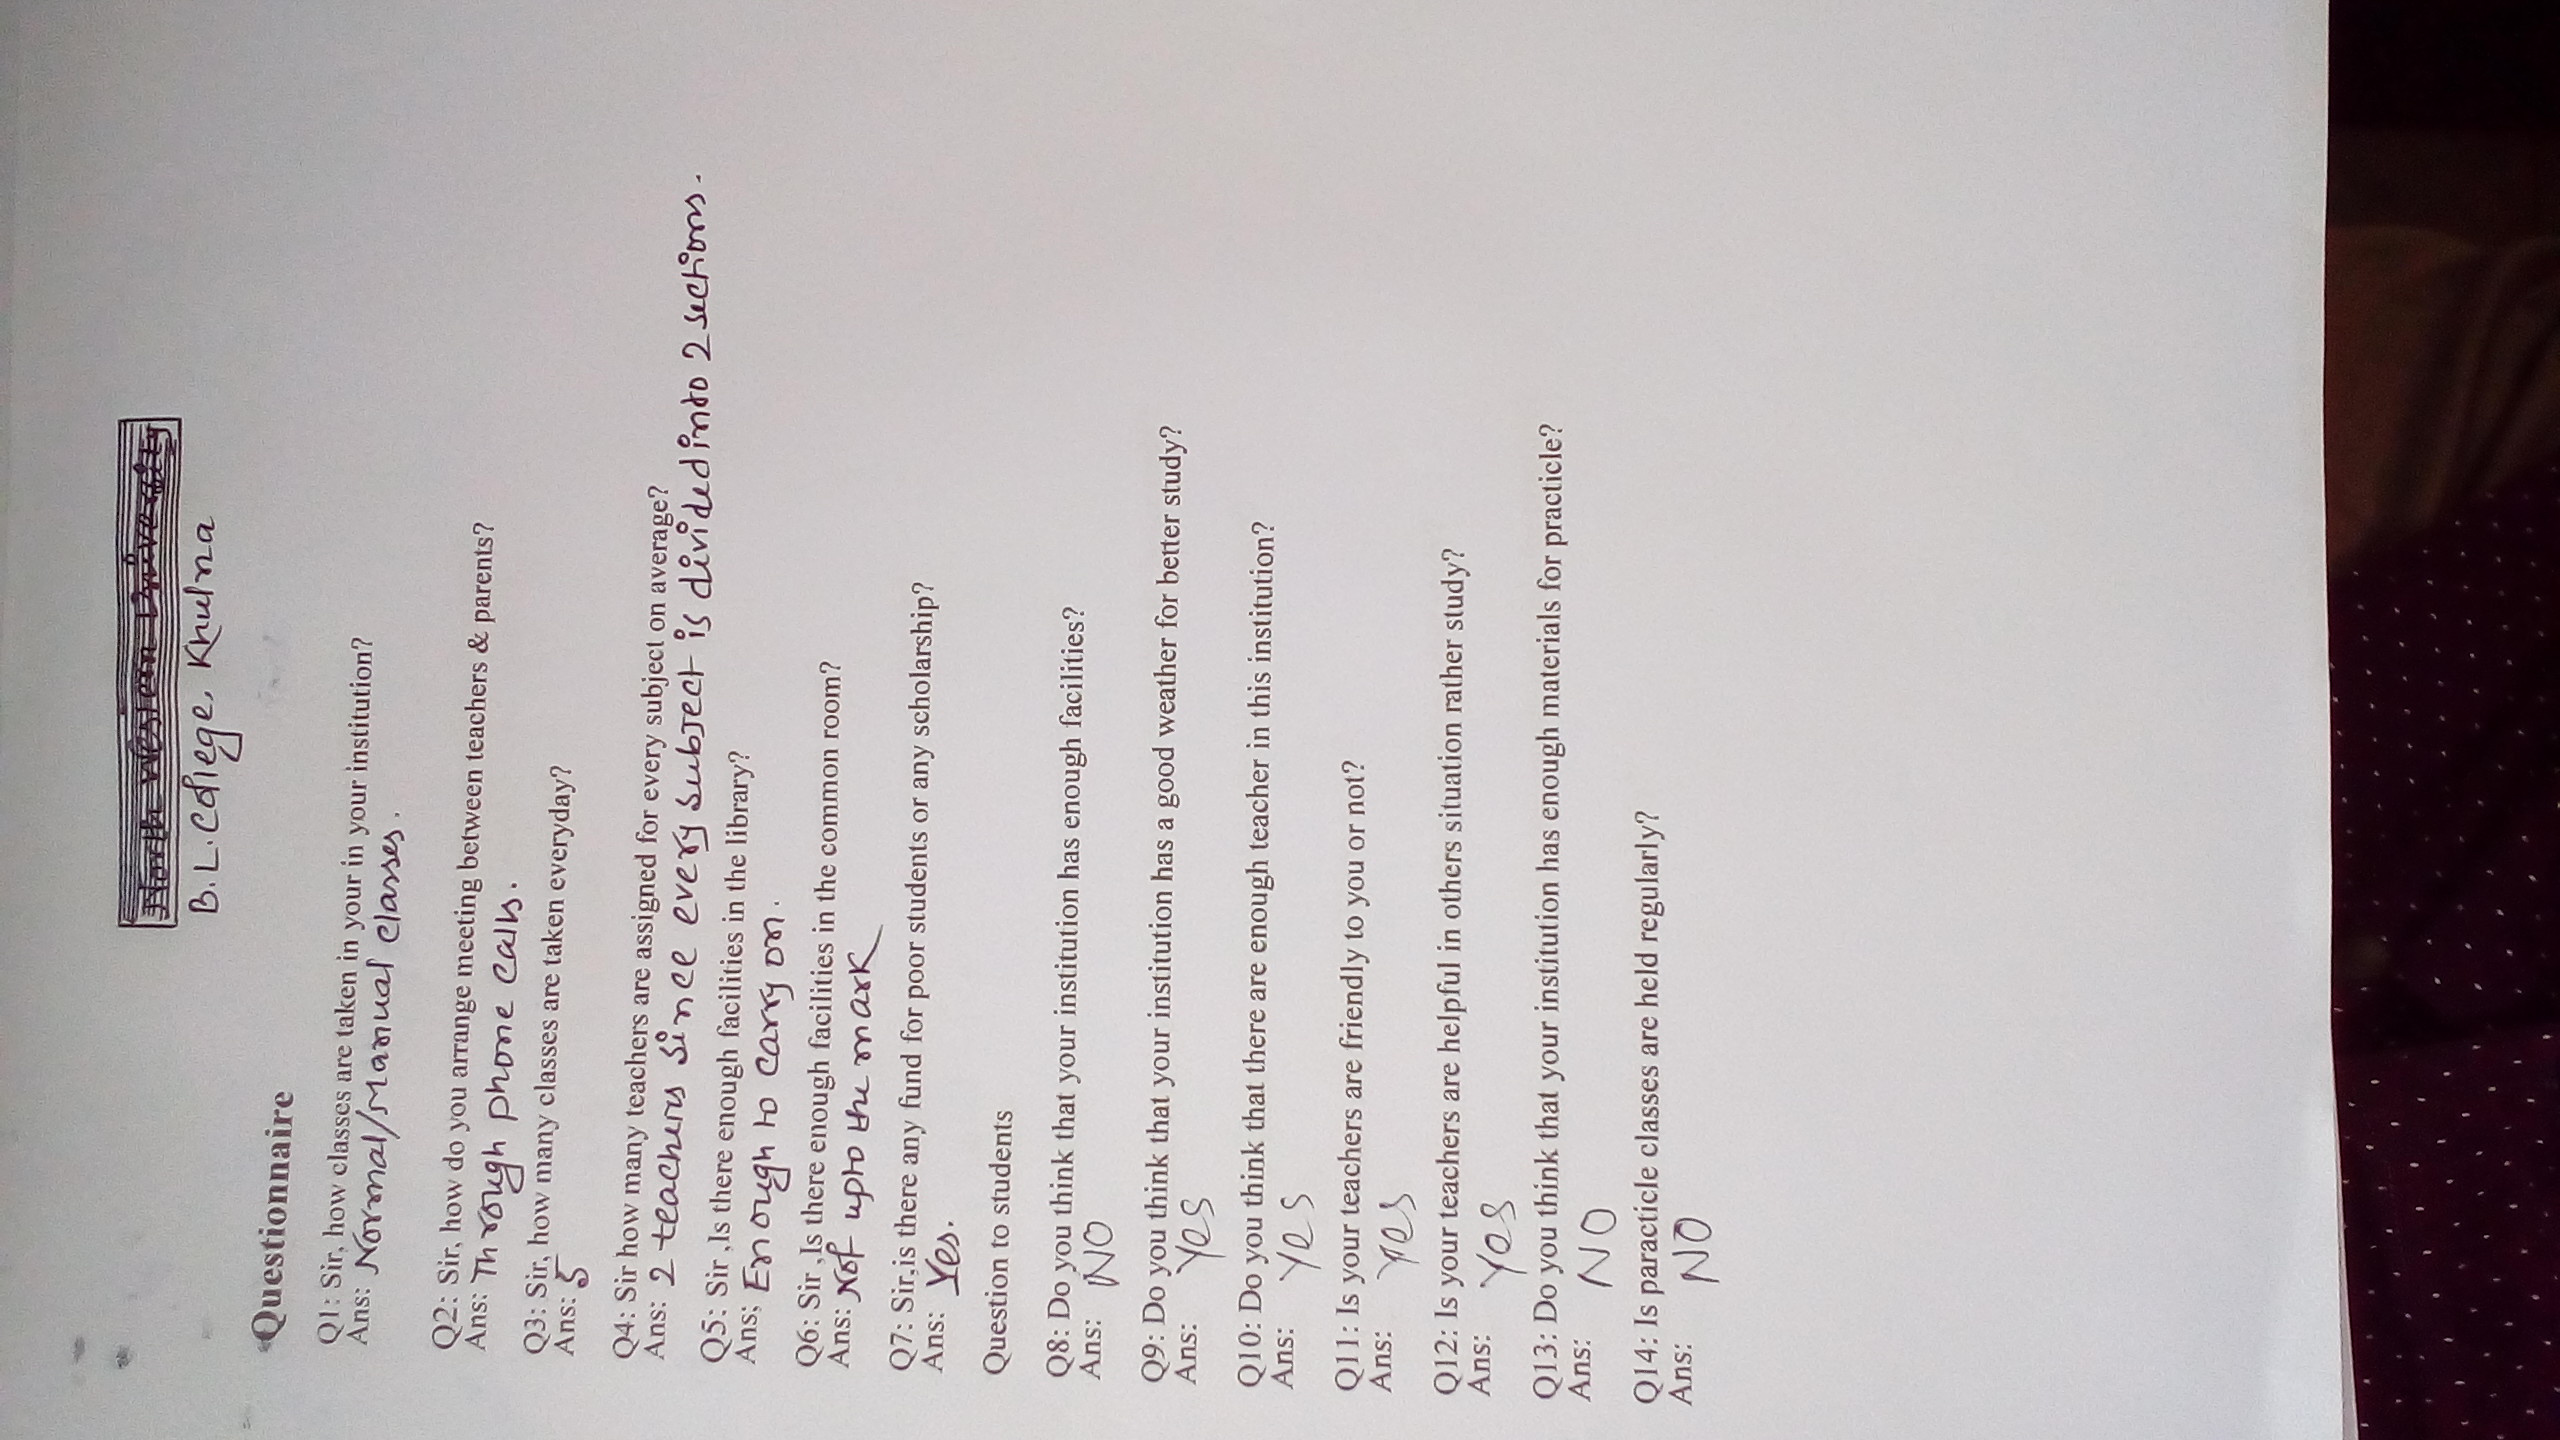 North Western University
B.L. College, Khulna
Questionnaire
Q1: Sir, how classes are taken in your in your institution?
Ans: Normal/Manual classes.
Q2: Sir, how do you arrange meeting between teachers & parents?
Ans: Through phone calls.
Q3: Sir, how many classes are taken everyday?
Ans: 5
Q4: Sir how many teachers are assigned for every subject on average?
Ans: 2 teachers since every subject is divided into 2 sections.
Q5: Sir ,Is there enough facilities in the library?
Ans; Enough to carry on.
Q6: Sir ,Is there enough facilities in the common room?
Ans: Not upto the mark
Q7: Sir,is there any fund for poor students or any scholarship?
Ans: Yes.
Question to students
Q8: Do you think that your institution has enough facilities?
Ans: NO
Q9: Do you think that your institution has a good weather for better study?
Ans: Yes
Q10: Do you think that there are enough teacher in this institution?
Ans: Yes
Q11: Is your teachers are friendly to you or not?
Ans: Yes
Q12: Is your teachers are helpful in others situation rather study?
Ans: Yes
Q13: Do you think that your institution has enough materials for practicle?
Ans: NO
Q14: Is paracticle classes are held regularly?
Ans: NO